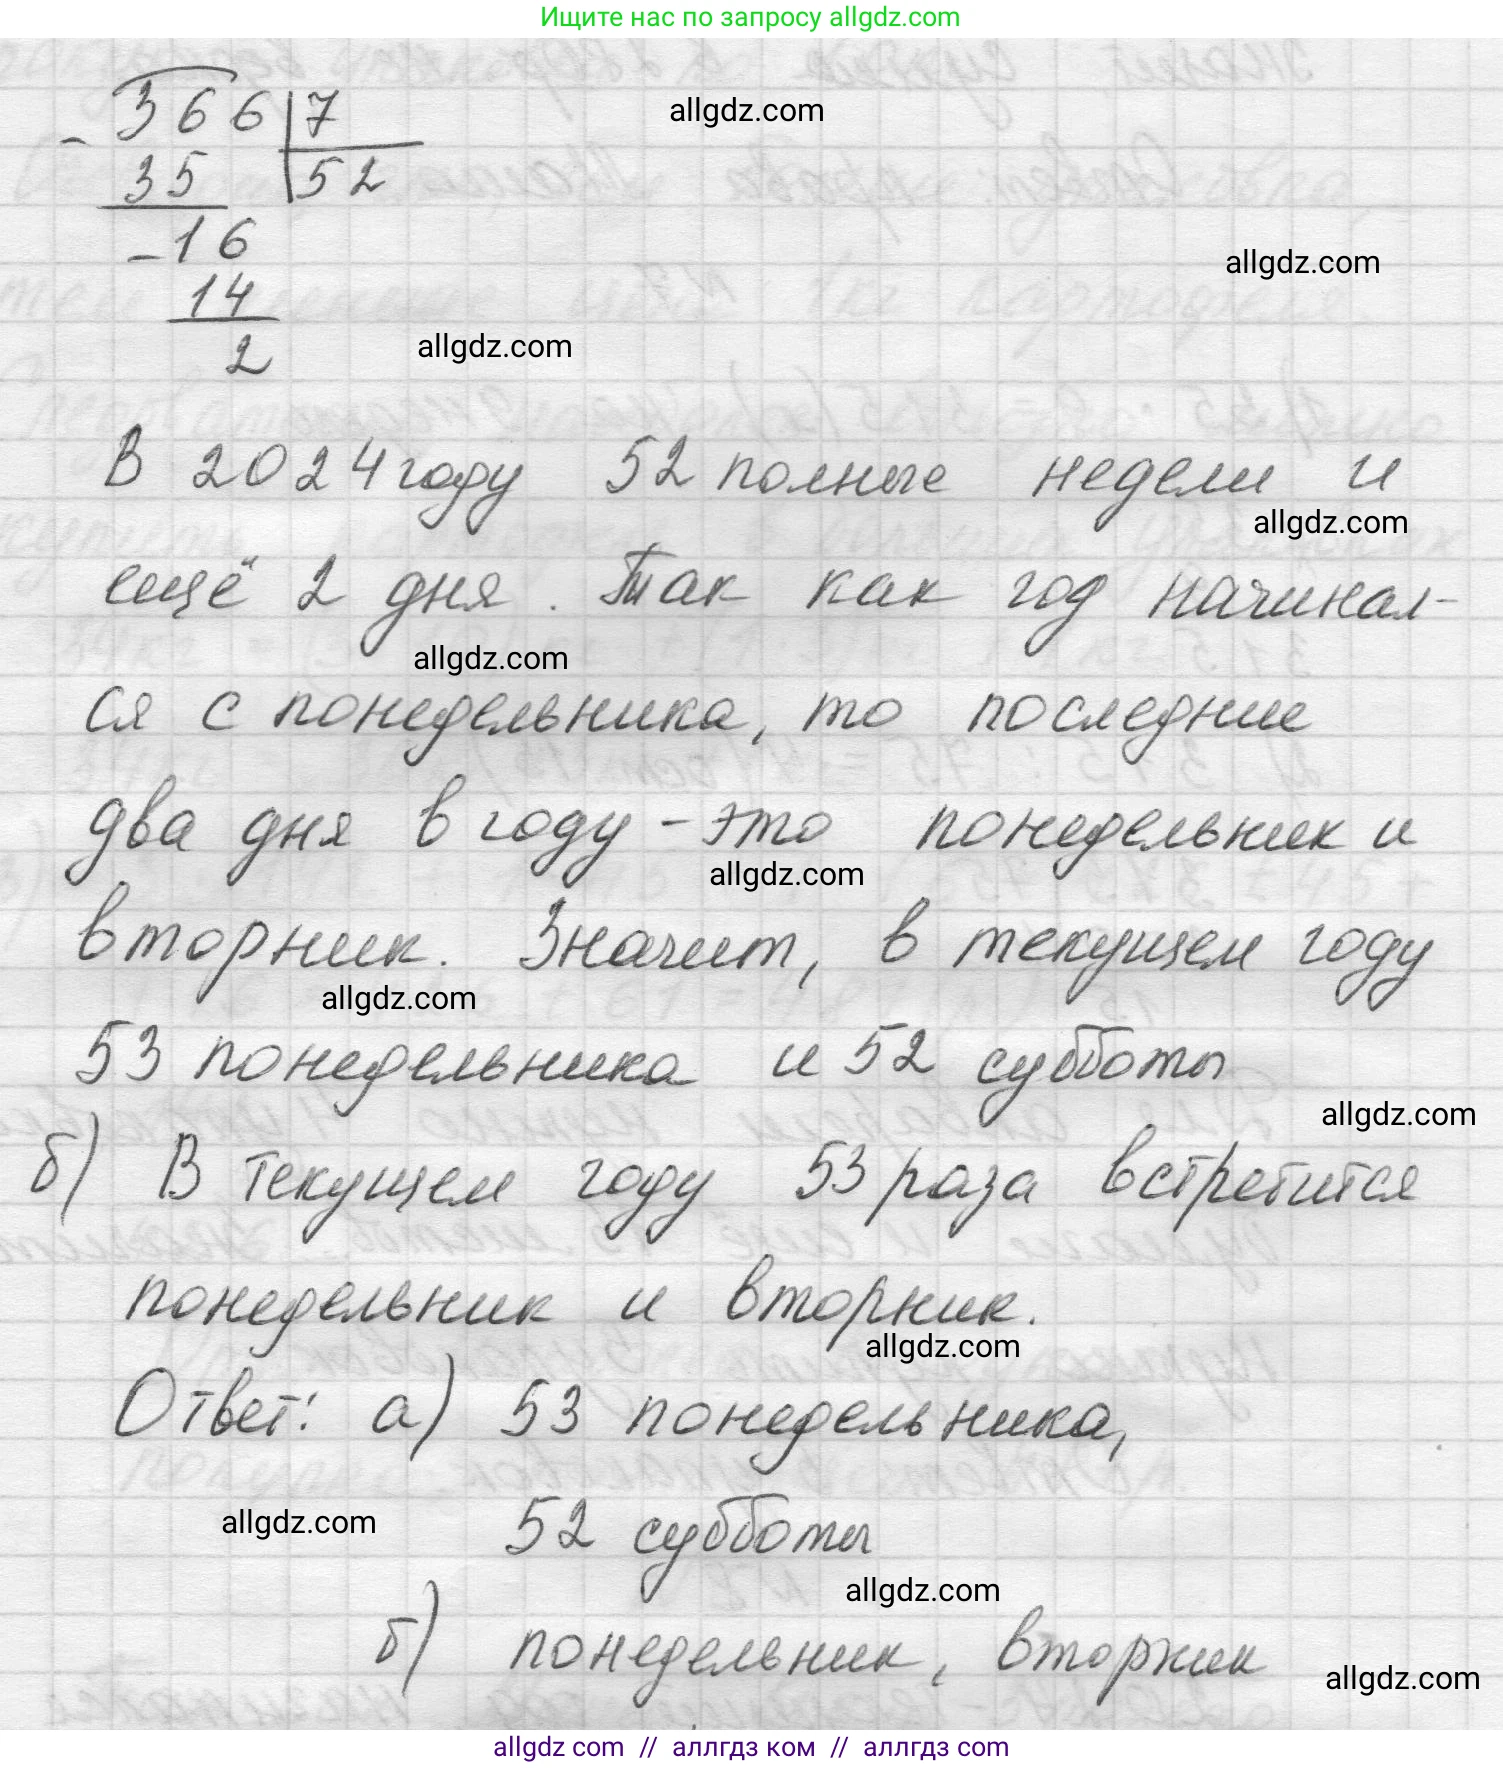 Ищите нас по запросу allgdz.com
366 7
allgdz.com
- 35 52
-16
allgdz.com
14
allgdz.com
2
В 2024 году 52 полные недели и
allgdz.com
ещё 2 дня. Так как год начинал-
allgdz.com
ся с понедельника, то последние
два дня в году - это понедельник и
allgdz.com
вторник. Значит, в текущем году
allgdz.com
53 понедельника и 52 субботы
allgdz.com
б) В текущем году 53 раза встретится
понедельник и вторник.
allgdz.com
Ответ: а) 53 понедельника,
allgdz.com
52 субботы
allgdz.com
б) понедельник, вторник
allgdz.com
allgdz com // аллгдз ком // аллгдз com